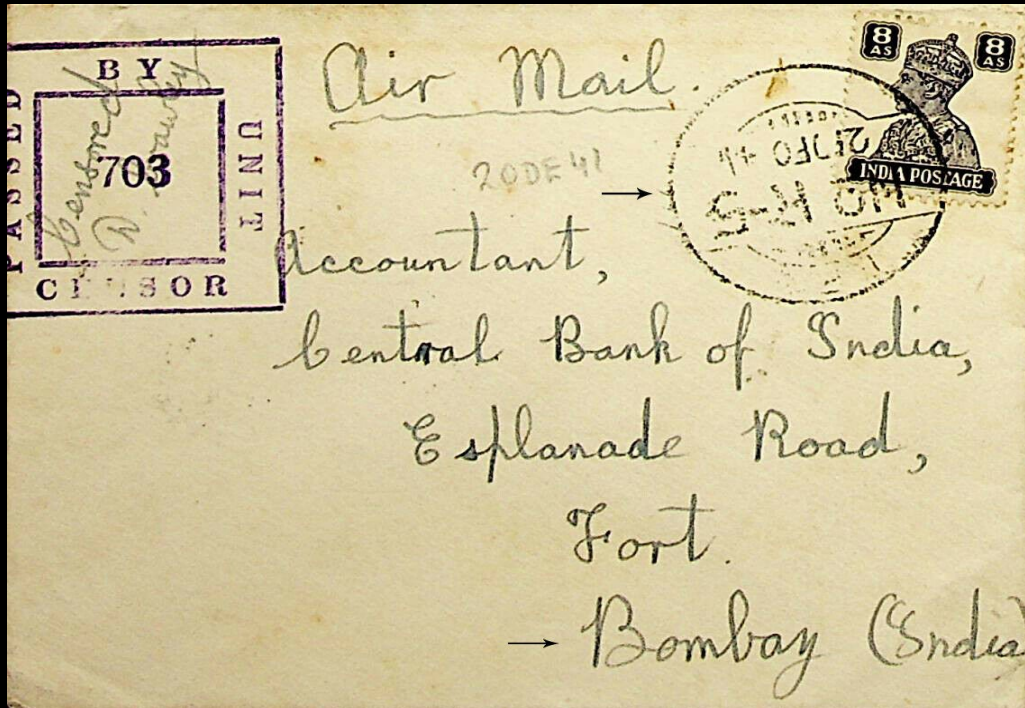 PASSED BY UNIT CENSOR
703
Censored
Air Mail.
8 AS
8 AS
INDIA POSTAGE
20DE41
Accountant,
Central Bank of India,
Esplanade Road,
Fort.
Bombay (India